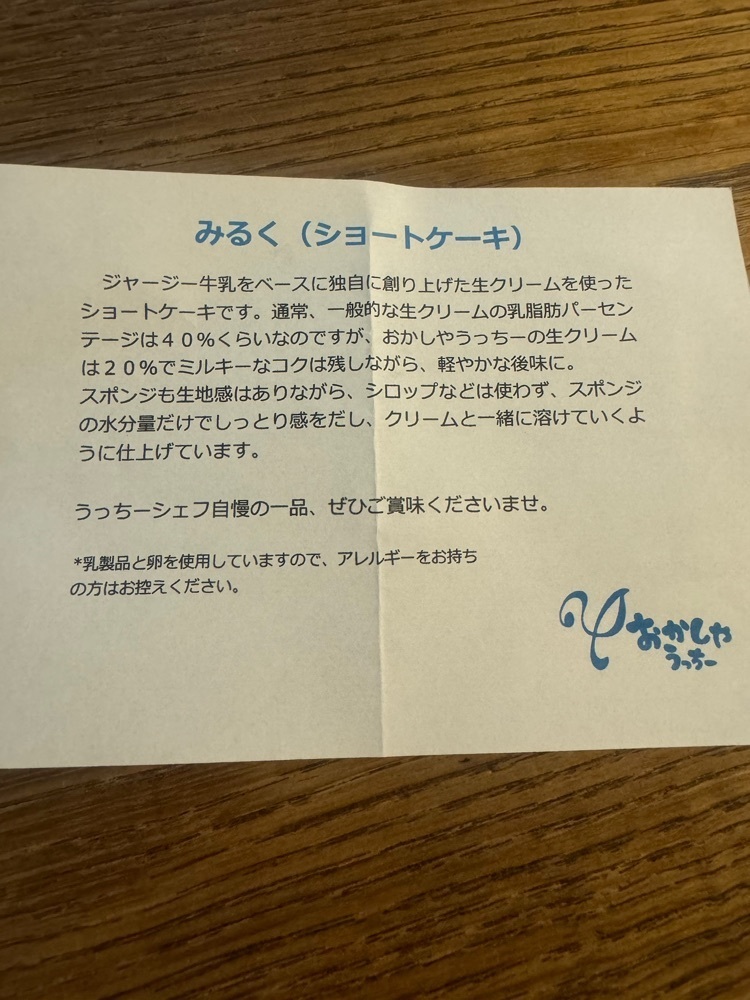 みるく（ショートケーキ）
ジャージー牛乳をベースに独自に創り上げた生クリームを使った
ショートケーキです。通常、一般的な生クリームの乳脂肪パーセン
テージは４０％くらいなのですが、おかしやうっちーの生クリーム
は２０％でミルキーなコクは残しながら、軽やかな後味に。
スポンジも生地感はありながら、シロップなどは使わず、スポンジ
の水分量だけでしっとり感をだし、クリームと一緒に溶けていくよ
うに仕上げています。
うっちーシェフ自慢の一品、ぜひご賞味くださいませ。
*乳製品と卵を使用していますので、アレルギーをお持ち
の方はお控えください。
おかしや
うっちー